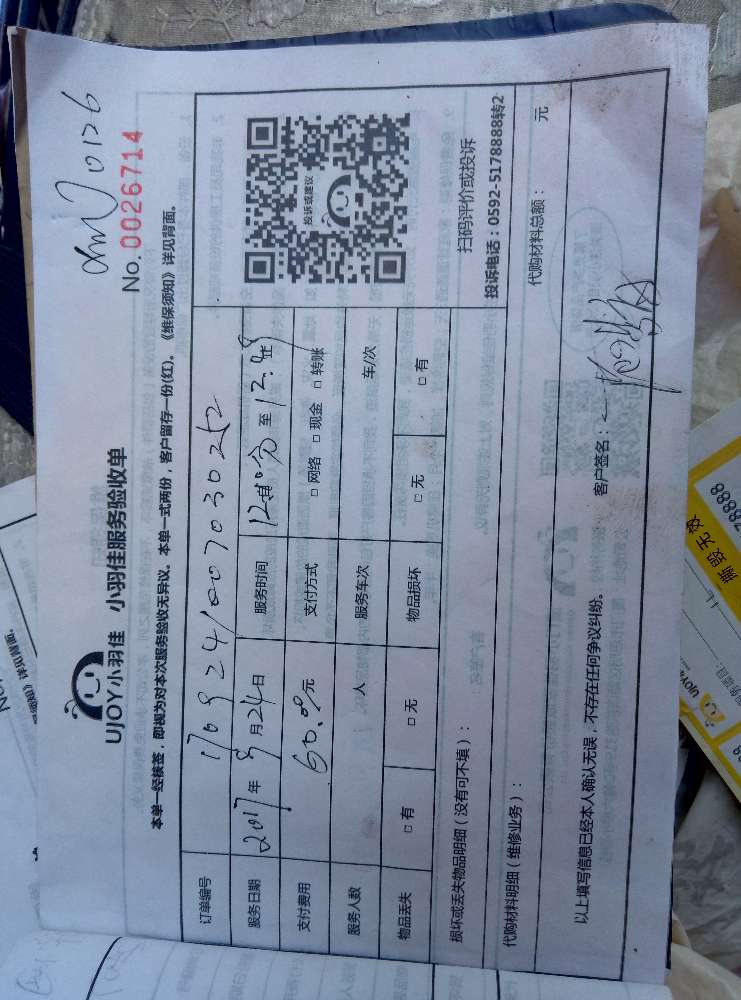 0126
No. 0026714
UJOY小羽佳 小羽佳服务验收单
本单一经核签，即视为对本次服务验收无异议。本单一式两份，客户留存一份(红)。《维保须知》详见背面。
订单编号 170924100703025
服务日期 2017年9月24日 服务时间 至
支付费用 60.00元 支付方式 □网络 □现金 □转账
服务人数 人 服务车次 车/次
物品丢失 □有 □无 物品损坏 □无 □有
投诉或建议
扫码评价或投诉
投诉电话：0592-5178888转2
损坏或丢失物品明细（没有可不填）：
代购材料明细（维修业务）： 代购材料总额： 元
以上填写信息已经本人确认无误，不存在任何争议纠纷。 客户签名：
撕毁无效
78888
UJOY